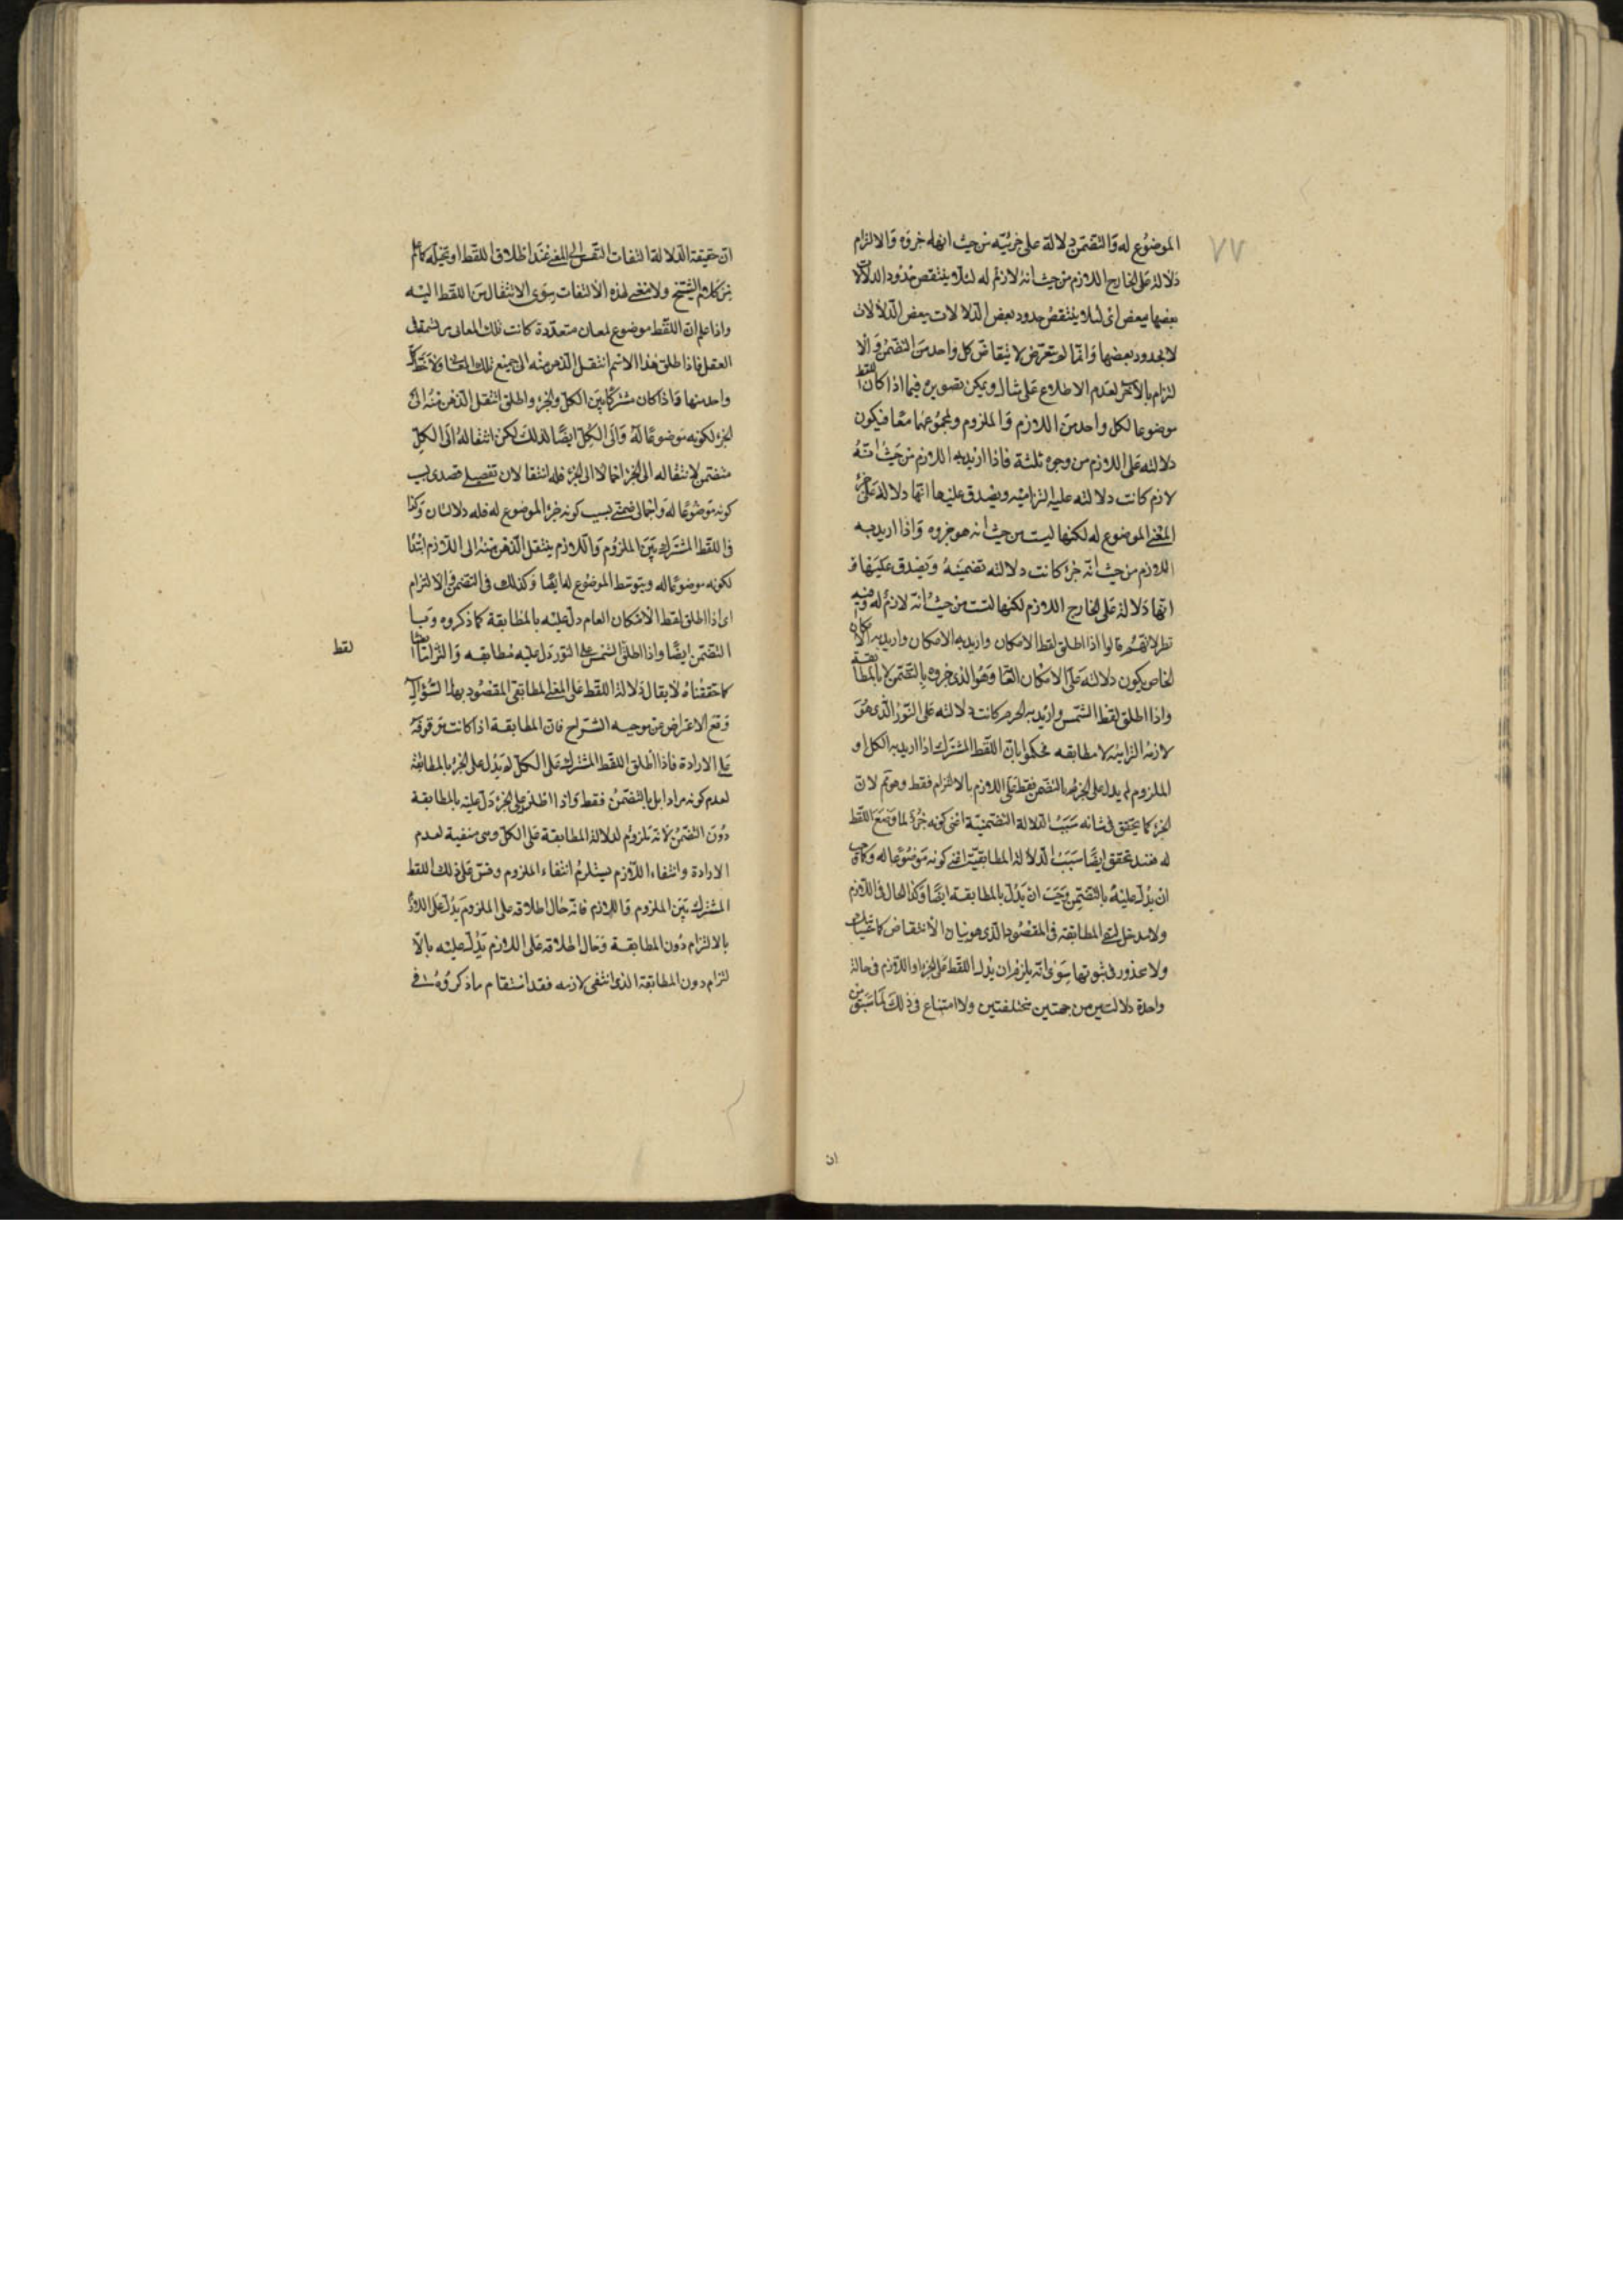 ٧٧
الموضوع له والتضمن دلالة على جزئيه من حيث انها جزؤه والالتزام
دلالة على الخارج اللازم من حيث انه لازم له لئلا ينتقض حدود الدلالات
بعضها ببعض اى لئلا ينتقض حدود بعض الدلالات ببعض الدلالات
لا بحدود بعضها وانما لم يتعرض لانتقاض كل واحد من التضمن والا
لتزام بالآخر لعدم الاطلاع على مثال ويمكن تصويره فيما اذا كان اللفظ
موضوعا لكل واحد من اللازم والملزوم ولمجموعهما معا فيكون
دلالته على اللازم من وجوه ثلثة فاذا اريد به اللازم من حيث انه
لازم كانت دلالته عليه التزامية ويصدق عليها انها دلالة على جزء
المعنى الموضوع له لكنها ليست من حيث انه هو جزوه واذا اريد به
اللازم من حيث انه جزء كانت دلالته تضمنية ويصدق عليها
انها دلالة على الخارج اللازم لكنها ليست من حيث انه لازم له وفيه
نظر لانهم قالوا اذا اطلق لفظ الامكان واريد به الامكان واريد به الامكان
الخاص يكون دلالته على الامكان العام وهو الذى جزوه بالتضمن لا بالمطابقة
واذا اطلق لفظ الشمس واريد به الجرم كانت دلالته على النور الذى هو
لازمه التزامية لا مطابقه فحكموا بان اللفظ المشترك اذا اريد به الكل او
الملزوم لم يدل على الجزء الا بالتضمن فقط على اللازم بالالتزام فقط وهو تم لان
الجزء كما يتحقق فى شانه سبب الدلالة التضمنية اعنى كونه جزءا لما وضع اللفظ
له فقد تحقق ايضا سبب الدلالة المطابقية اعنى كونه موضوعا له وكما وجب
ان يدل عليه بالتضمن وجب ان يدل بالمطابقة ايضا وكذا الحال فى اللازم
ولا مدخل لنفى المطابقة فى المقصود الذى هو بيان الانتقاض كما
ولا محذور فى ثبوتها سوى انه يلزم ان يدل اللفظ على الجزء او اللازم فى حالة
واحدة دلالتين من جهتين مختلفتين ولا امتناع فى ذلك لما سبق من
ان
ان حقيقة الدلالة التفات النفس الى المعنى عند اطلاق اللفظ او تخيله كما علم
من كلام الشيخ ولا معنى لهذه الالتفات سوى الانتقال من اللفظ اليه
واذا علم ان اللفظ موضوع لمعان متعددة كانت تلك المعانى مرتسمة فى
العقل فاذا اطلق هذا الاسم انتقل الذهن منه الى جميع تلك المعانى
واحد منها فاذا كان مشتركا بين الكل والجزء واطلق انتقل الذهن منه الى
الجزء لكونه موضوعا له والى الكل ايضا لذلك لكن انتقاله الى الكل
متضمن لانتقاله الى الجزء اجمالا الى الجزء فله انتقالان تفصيلى قصدى بسبب
كونه موضوعا له واجمالى ضمنى بسبب كونه جزء الموضوع له فله دلالتان وكذا
فى اللفظ المشترك بين الملزوم واللازم ينتقل الذهن منه الى اللازم ابتداء
لكونه موضوعا له وبتوسط الموضوع له ايضا وكذلك فى التضمن والالتزام
اى اذا اطلق لفظ الامكان العام دل عليه بالمطابقة كما ذكروه
التضمن ايضا واذا اطلق الشمس على النور دل عليه مطابقه والتزاما ايضا
لفظ
كما حققناه لا يقال دلالة اللفظ على المعنى المطابقى المقصود بهذا السؤال
دفع الاعتراض عن موجبه الشراح فان المطابقة اذا كانت متوقوفة
على الارادة فاذا اطلق اللفظ المشترك على الكل لم يدل على الجزء بالمطابقة
لعدم كونه مرادا بل بالتضمن فقط واذا اطلق على الجزء دل عليه بالمطابقة
دون التضمن لانه ملزوم لدلالة المطابقة على الكل وهى منفية لعدم
الارادة وانتفاء اللازم يستلزم انتفاء الملزوم وقس على ذلك اللفظ
المشترك بين الملزوم واللازم فانه حال اطلاقه على الملزوم يدل على اللازم
بالالتزام دون المطابقة وحال اطلاقه على اللازم يدل عليه بالا
لتزام دون المطابقة الذى انتفى لازمه فقد استقام ما ذكروه فى